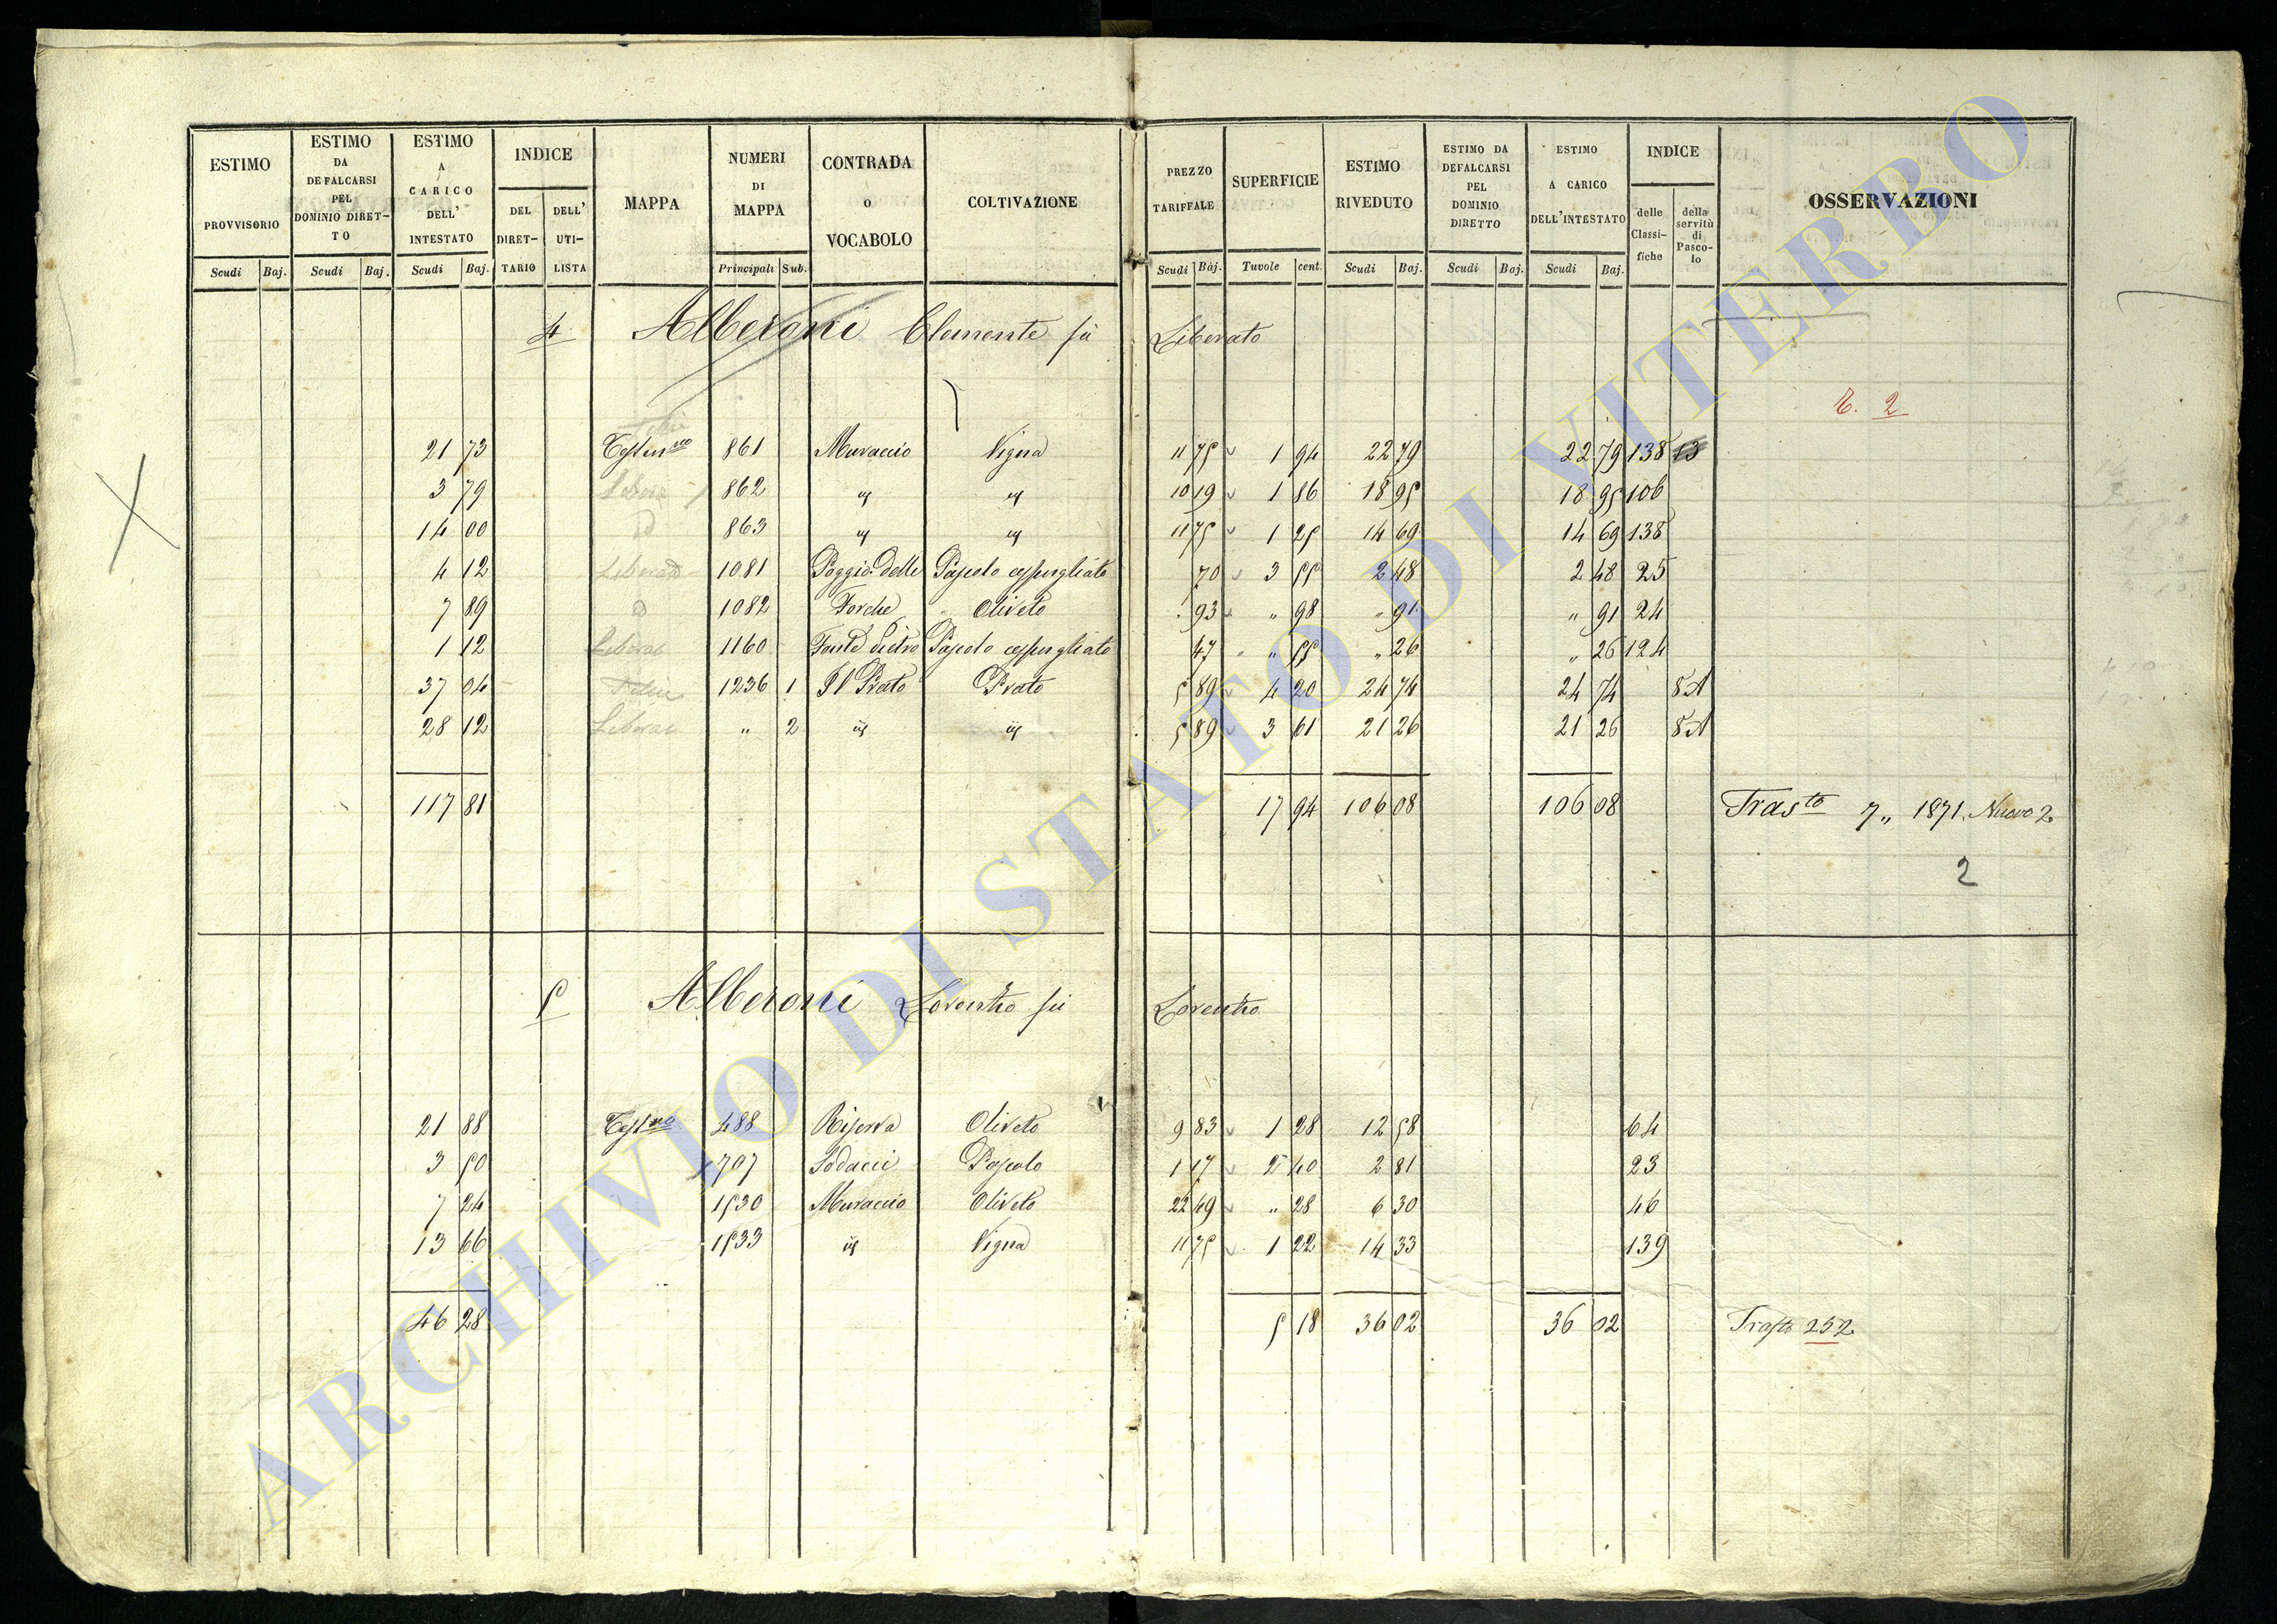 ESTIMO PROVVISORIO Scudi Baj. ESTIMO DA DEFALCARSI PEL DOMINIO DIRET-TO Scudi Baj. ESTIMO A CARICO DELL' INTESTATO Scudi Baj. INDICE DEL DIRET-TARIO DELL' UTI-LISTA MAPPA NUMERI DI MAPPA Principali Sub. CONTRADA O VOCABOLO COLTIVAZIONE PREZZO TARIFFALE Scudi Baj. SUPERFICIE Tavole cent. ESTIMO RIVEDUTO Scudi Baj. ESTIMO DA DEFALCARSI PEL DOMINIO DIRETTO Scudi Baj. ESTIMO A CARICO DELL'INTESTATO Scudi Baj. INDICE delle Classi-fiche della servitù di Pasco-lo OSSERVAZIONI
4 Alberoni Clemente fù Liberato
2
21 73 861 Muraccio Vigna 11 75 1 94 22 79 22 79 138 13
3 79 862 " " 10 19 1 86 18 95 18 95 106
14 00 863 " " 11 75 1 25 14 69 14 69 138
4 12 1081 Poggio delle Pascolo cespugliato 70 3 55 2 48 2 48 25
7 89 1082 Forche Oliveto 93 " 98 " 91 " 91 24
1 12 1160 Pascolo cespugliato 47 " 55 " 26 " 26 124
37 04 1236 1 Il Prato Prato 5 89 4 20 24 74 24 74 8 A
28 12 " 2 id id 5 89 3 61 21 26 21 26 8 A
117 81 17 94 106 08 106 08 Trasto 7,, 1871. Nuovo 2
2
5 Alberoni Lorenzo fù Lorenzo
21 88 488 Riserva Oliveto 9 83 1 28 12 58 64
3 50 707 Sodacci Pascolo 1 17 2 40 2 81 23
7 24 1530 Muraccio Oliveto 22 49 " 28 6 30 46
13 66 1533 id Vigna 11 75 1 22 14 33 139
46 28 5 18 36 02 36 02 Trasto 252
ARCHIVIO DI STATO DI VITERBO